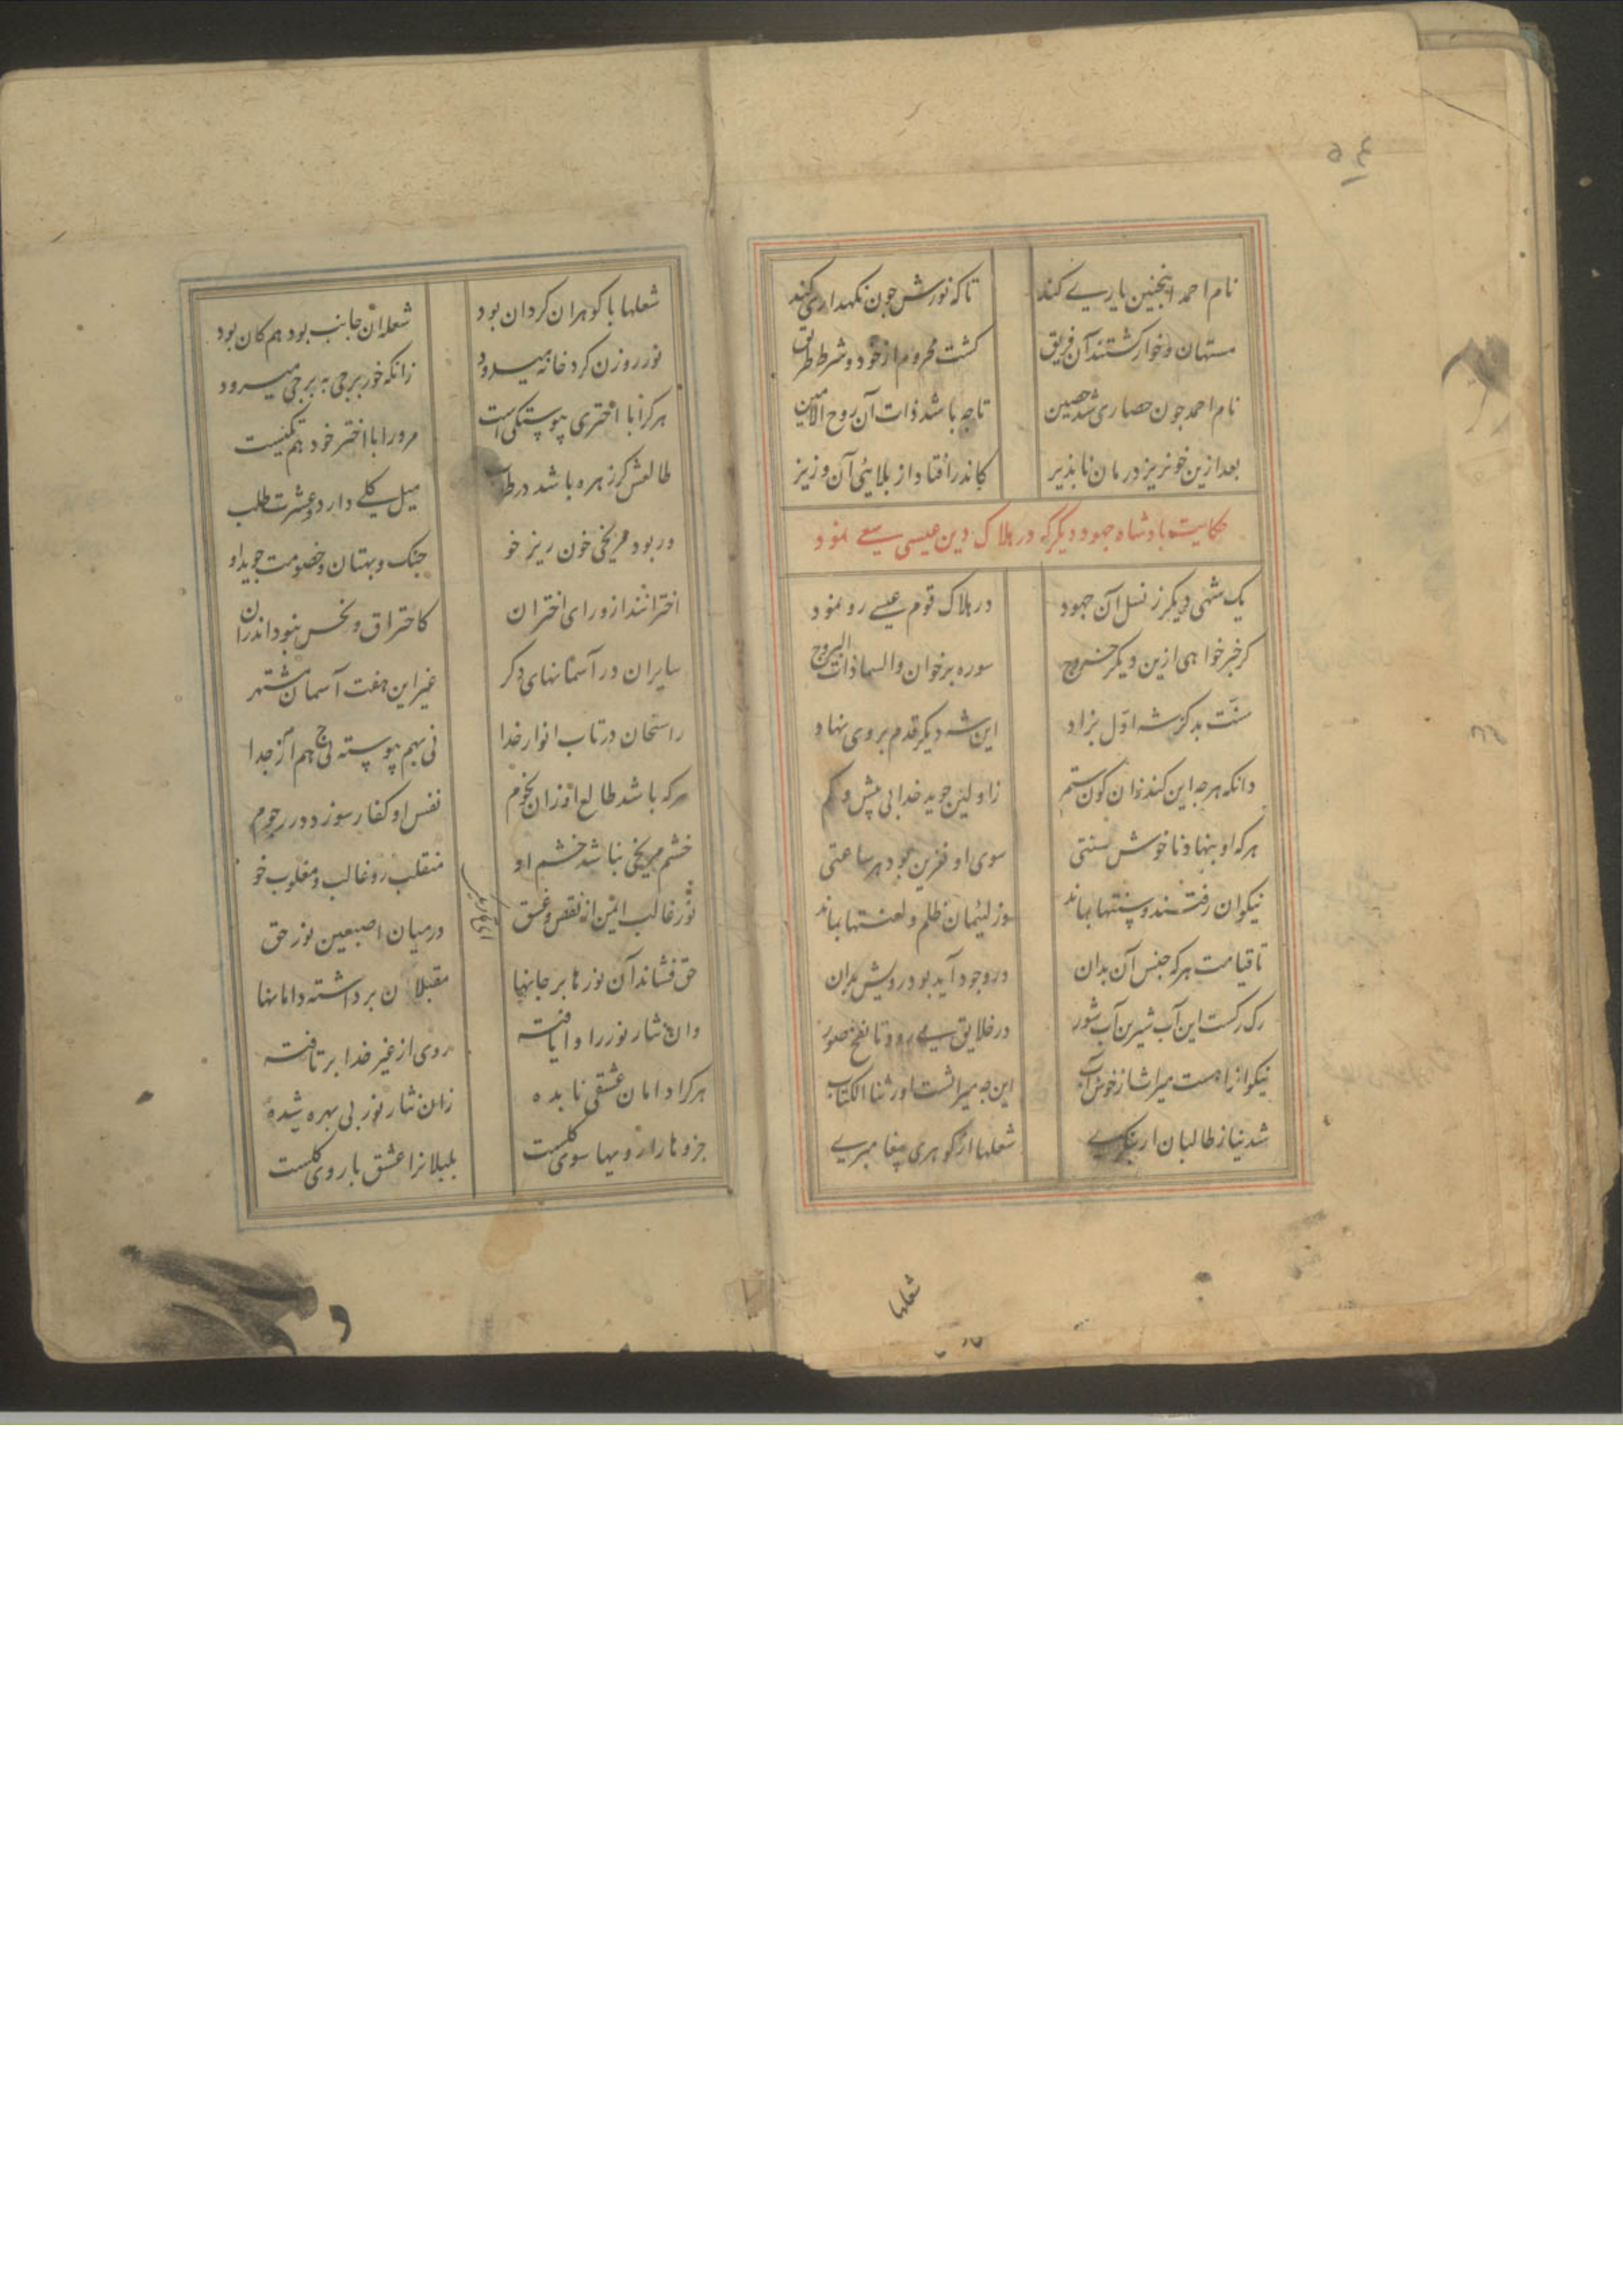 نام احمد اینچنین یاری کند تا که نورش چون نکهداری کند
مستهان و خوار کشتند آن فریق کشت محروم از خود و شرط طریق
نام احمد چون حصاری شد حصین تا چه باشد ذات آن روح الامین
بعد ازین خونریز درمان ناپذیر کاندر افتاد از بلائی آن وزیر
حکایت پادشاه جهود دیکر که در هلاک دین عیسی سعی نمود
یک شهی دیکر ز نسل آن جهود در هلاک قوم عیسی رو نمود
کر خبر خواهی ازین دیکر خروج سوره برخوان والسما ذات البروج
سنّت بد کز شه اوّل بزاد این شه دیکر قدم بر وی نهاد
دانکه هرچه این کند زان کون ستم ز اولین جوید خدا بی بیش و کم
هرکه او بنهاد ناخوش سنتی سوی او نفرین بود هر ساعتی
نیکوان رفتند و سنتها بماند وز لئیمان ظلم و لعنتها بماند
تا قیامت هرکه جنس آن بدان در وجود آید بود رویش بدان
رک رکست این آب شیرین آب شور در خلایق می رود تا نفخ صور
نیکوانرا هست میراث از خوش آب این چه میراثست اورثنا الکتاب
شد نیاز طالبان ار بنکری شعلها از کوهر پیغامبری
شعلها
شعلها با کوهران کردان بود شعله آن جانب بود هم کان بود
نور روزن کرد خانه میدود زانکه خور برجی به برجی میرود
هرکرا با اختری پیوستکی است مرورا با اختر خود هم تکیست
طالعش کر زهره باشد در طرب میل کلی دارد و عشرت طلب
ور بود مریخی خون ریز خو جنک و بهتان و خصومت جوید او
اخترانند از ورای اختران کاحتراق و نحس نبود اندران
سایران در آسمانهای دکر غیر این هفت آسمان مشتهر
راسخان در تاب انوار خدا نی بهم پیوسته نی از هم جدا
هرکه باشد طالع او زان نجوم نفس او کفار سوزد در رجوم
خشم مریخی نباشد خشم او منقلب رو غالب و مغلوب خو
نور غالب ایمن از نقص و غسق درمیان اصبعین نور حق
حق فشاند آن نور را بر جانها مقبلان برداشته دامانها
وان نثار نور را وا یافته روی از غیر خدا برتافته
هرکرا دامان عشقی نابده زان نثار نور بی بهره شده
جزوها را رویها سوی کلست بلبلانرا عشق با روی کلست